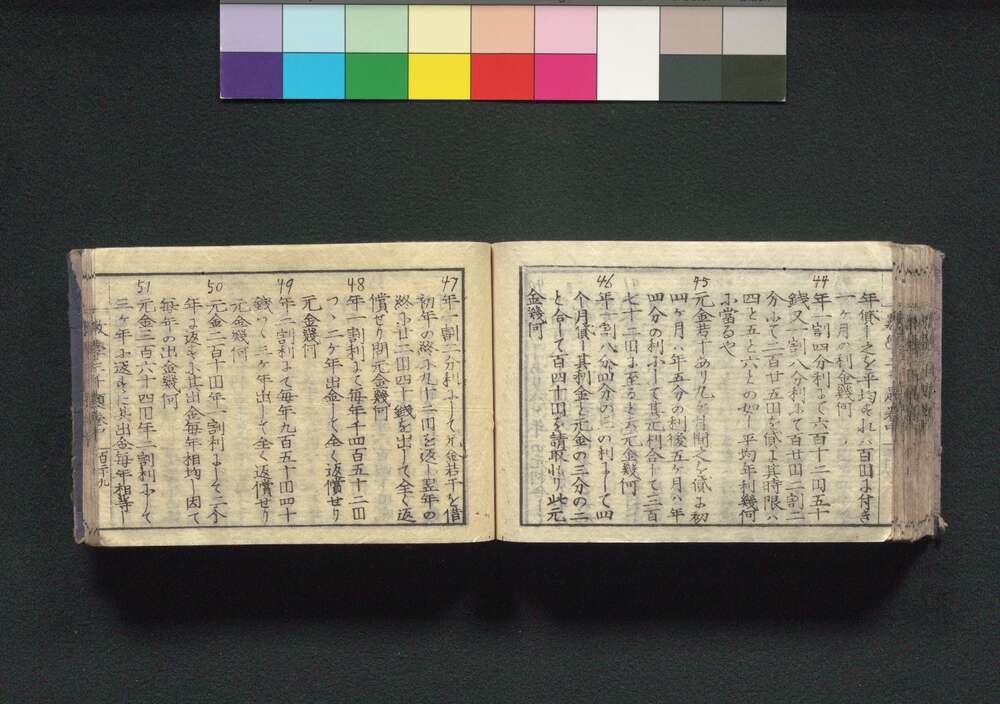 年貸し之を平均すれハ百円に付き
一ヶ月の利金幾何
44 年一割四分利にて六百十二円五十
銭又一割八分利にて百廿円二割二
分にて二百廿五円を貸す其時限ハ
四と五と六との如し平均年利幾何
に當るや
45 元金若干あり九ヶ月間之を貸す初
四ヶ月ハ年五分の利後五ヶ月ハ年
四分の利にして其元利合して三百
七十二円に至ると云元金幾何
46 年一割八分四分の三の利にして四
个月貸し其利金と元金の三分の二
と合して百四十円を請取れり此元
金幾何
47 年一割二分利にして元金若干を借
初年の終に九十二円を返し翌年の
終に廿二円四十銭を出して全く返
償せり問元金幾何
48 年一割利にて毎年千四百五十二円
つゝ二ヶ年出金して全く返償せり
元金幾何
49 年二割利にて毎年九百五十円四十
銭つゝ三ヶ年出して全く返償せり
元金幾何
50 元金二百十円年一割利にして二个
年に返すに其出金毎年相均し因て
毎年の出金幾何
51 元金三百六十四円年二割利にして
三ヶ年に返すに其出金毎年相等し
百三十九